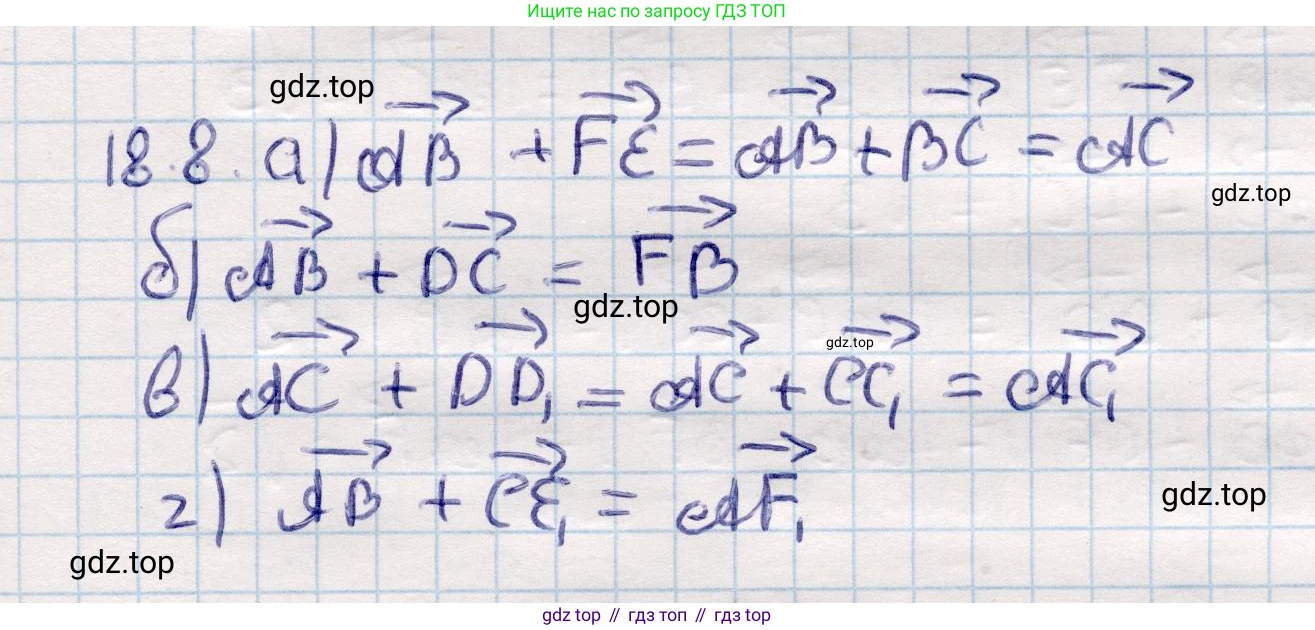 Ищите нас по запросу ГДЗ ТОП
gdz.top
18.8. а) AB + FE = AB + BC = AC
gdz.top
б) AB + DC = FB
gdz.top
gdz.top
в) AC + DD₁ = AC + CC₁ = AC₁
г) AB + CE₁ = AF₁
gdz.top
gdz.top
gdz top // гдз топ // гдз top